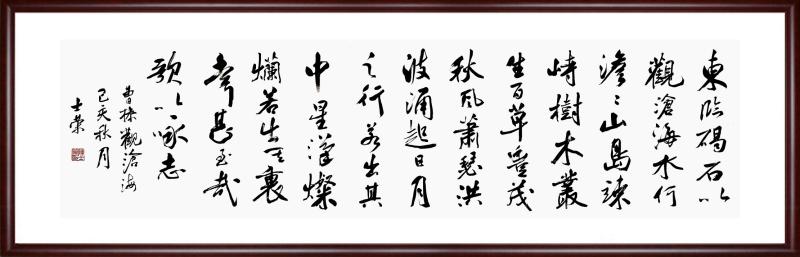 東臨碣石以
觀滄海水何
澹々山島竦
峙樹木叢
生百草豐茂
秋风蕭瑟洪
波涌起日月
之行若出其
中星漢燦
爛若出其裏
幸甚至哉
歌以咏志
曹操觀滄海
己亥秋月
士榮